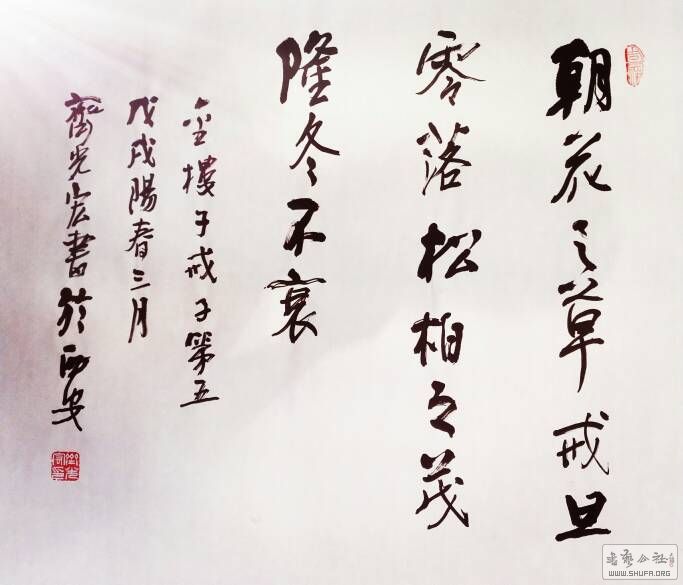 朝花之草戒旦
零落松柏之茂
隆冬不衰
金樓子戒子第五
戊戌陽春三月
齊光宏書於西安
书艺公社
WWW.SHUFA.ORG